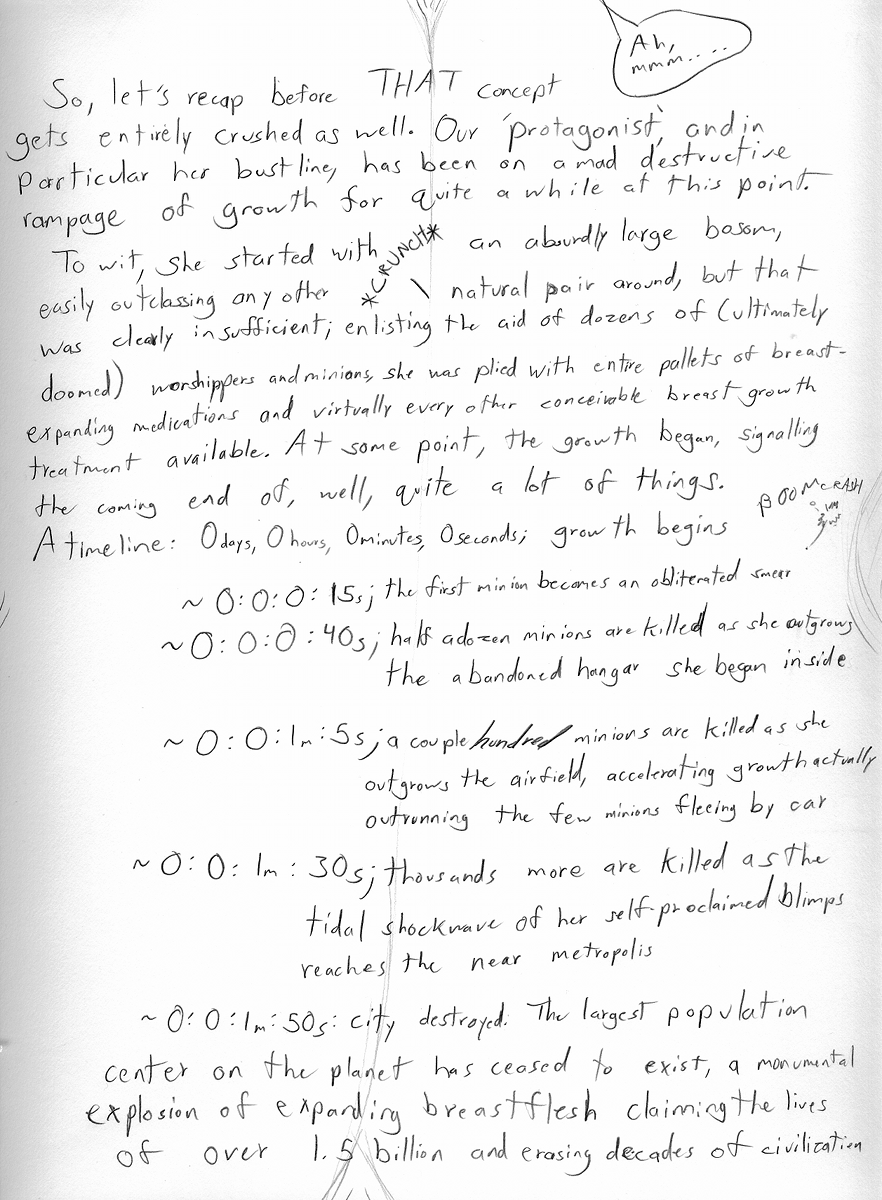 Ah,
mmm....
So, let's recap before THAT concept
gets entirely crushed as well. Our 'protagonist', and in
particular her bustline, has been on a mad destructive
rampage of growth for quite a while at this point.
To wit, she started with *CRUNCH* an absurdly large bosom,
easily outclassing any other natural pair around, but that
was clearly insufficient; enlisting the aid of dozens of (ultimately
doomed) worshippers and minions, she was plied with entire pallets of breast-
expanding medications and virtually every other conceivable breast growth
treatment available. At some point, the growth began, signalling
the coming end of, well, quite a lot of things.
BOOM CRASH
A timeline: 0 days, 0 hours, 0 minutes, 0 seconds; growth begins
~ 0:0:0:15s; the first minion becomes an obliterated smear
~ 0:0:0:40s; half a dozen minions are killed as she outgrows
the abandoned hangar she began inside
~ 0:0:1m:5s; a couple hundred minions are killed as she
outgrows the airfield, accelerating growth actually
outrunning the few minions fleeing by car
~ 0:0:1m:30s; thousands more are killed as the
tidal shockwave of her self-proclaimed blimps
reaches the near metropolis
~ 0:0:1m:50s: city destroyed. The largest population
center on the planet has ceased to exist, a monumental
explosion of expanding breastflesh claiming the lives
of over 1.5 billion and erasing decades of civilization